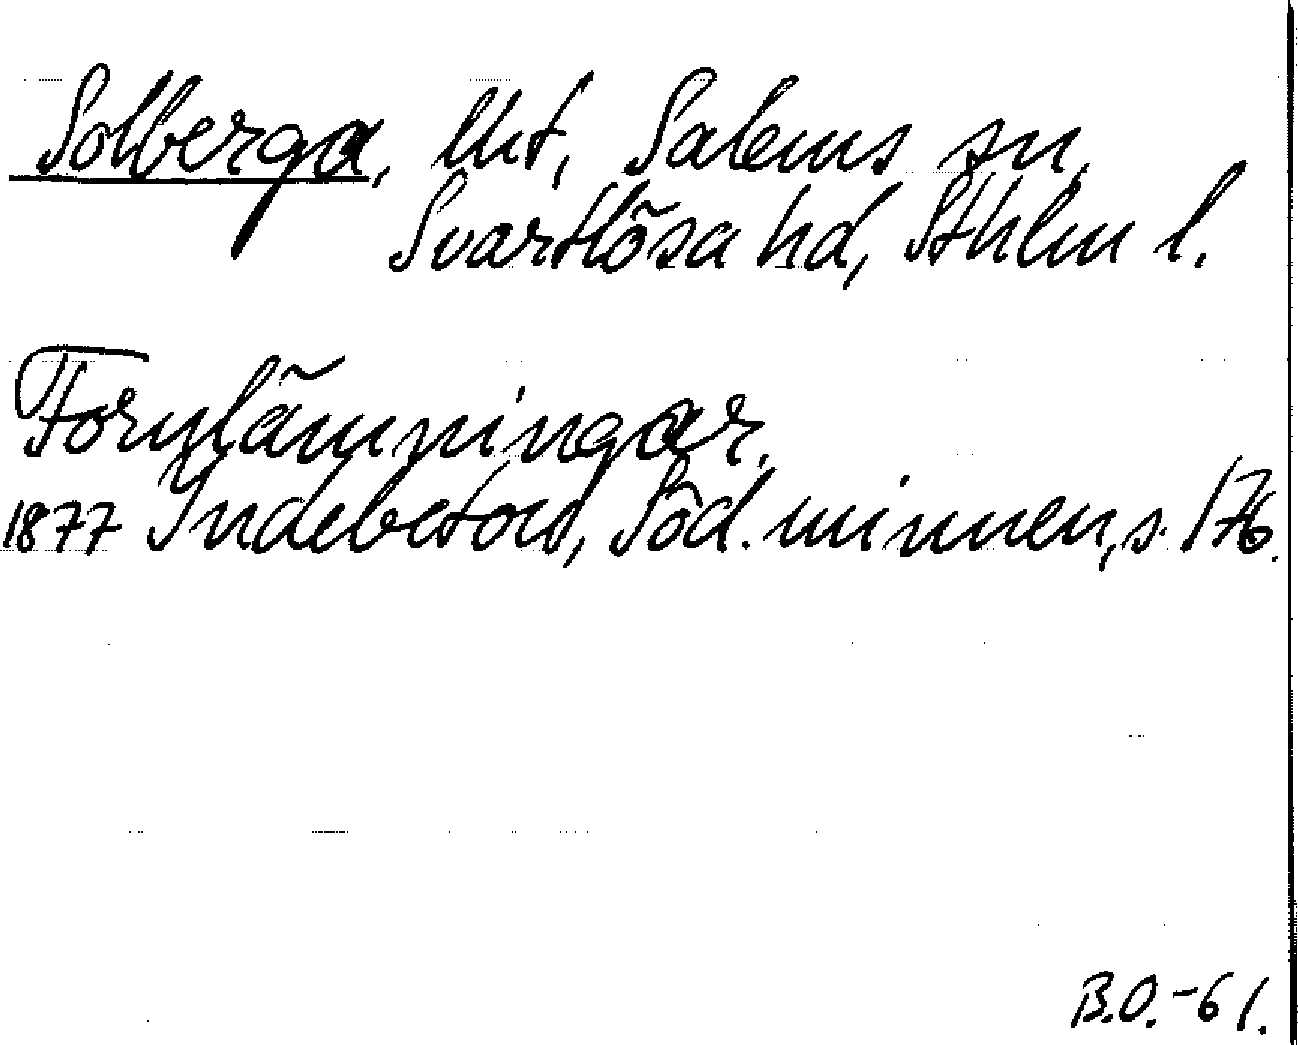 Solberga, lht, Salems sn,
Svartlösa hd, Sthlm l.
Fornlämningar.
1877 Indebetou, Söd. minnen, s. 176.
B.O.-61.